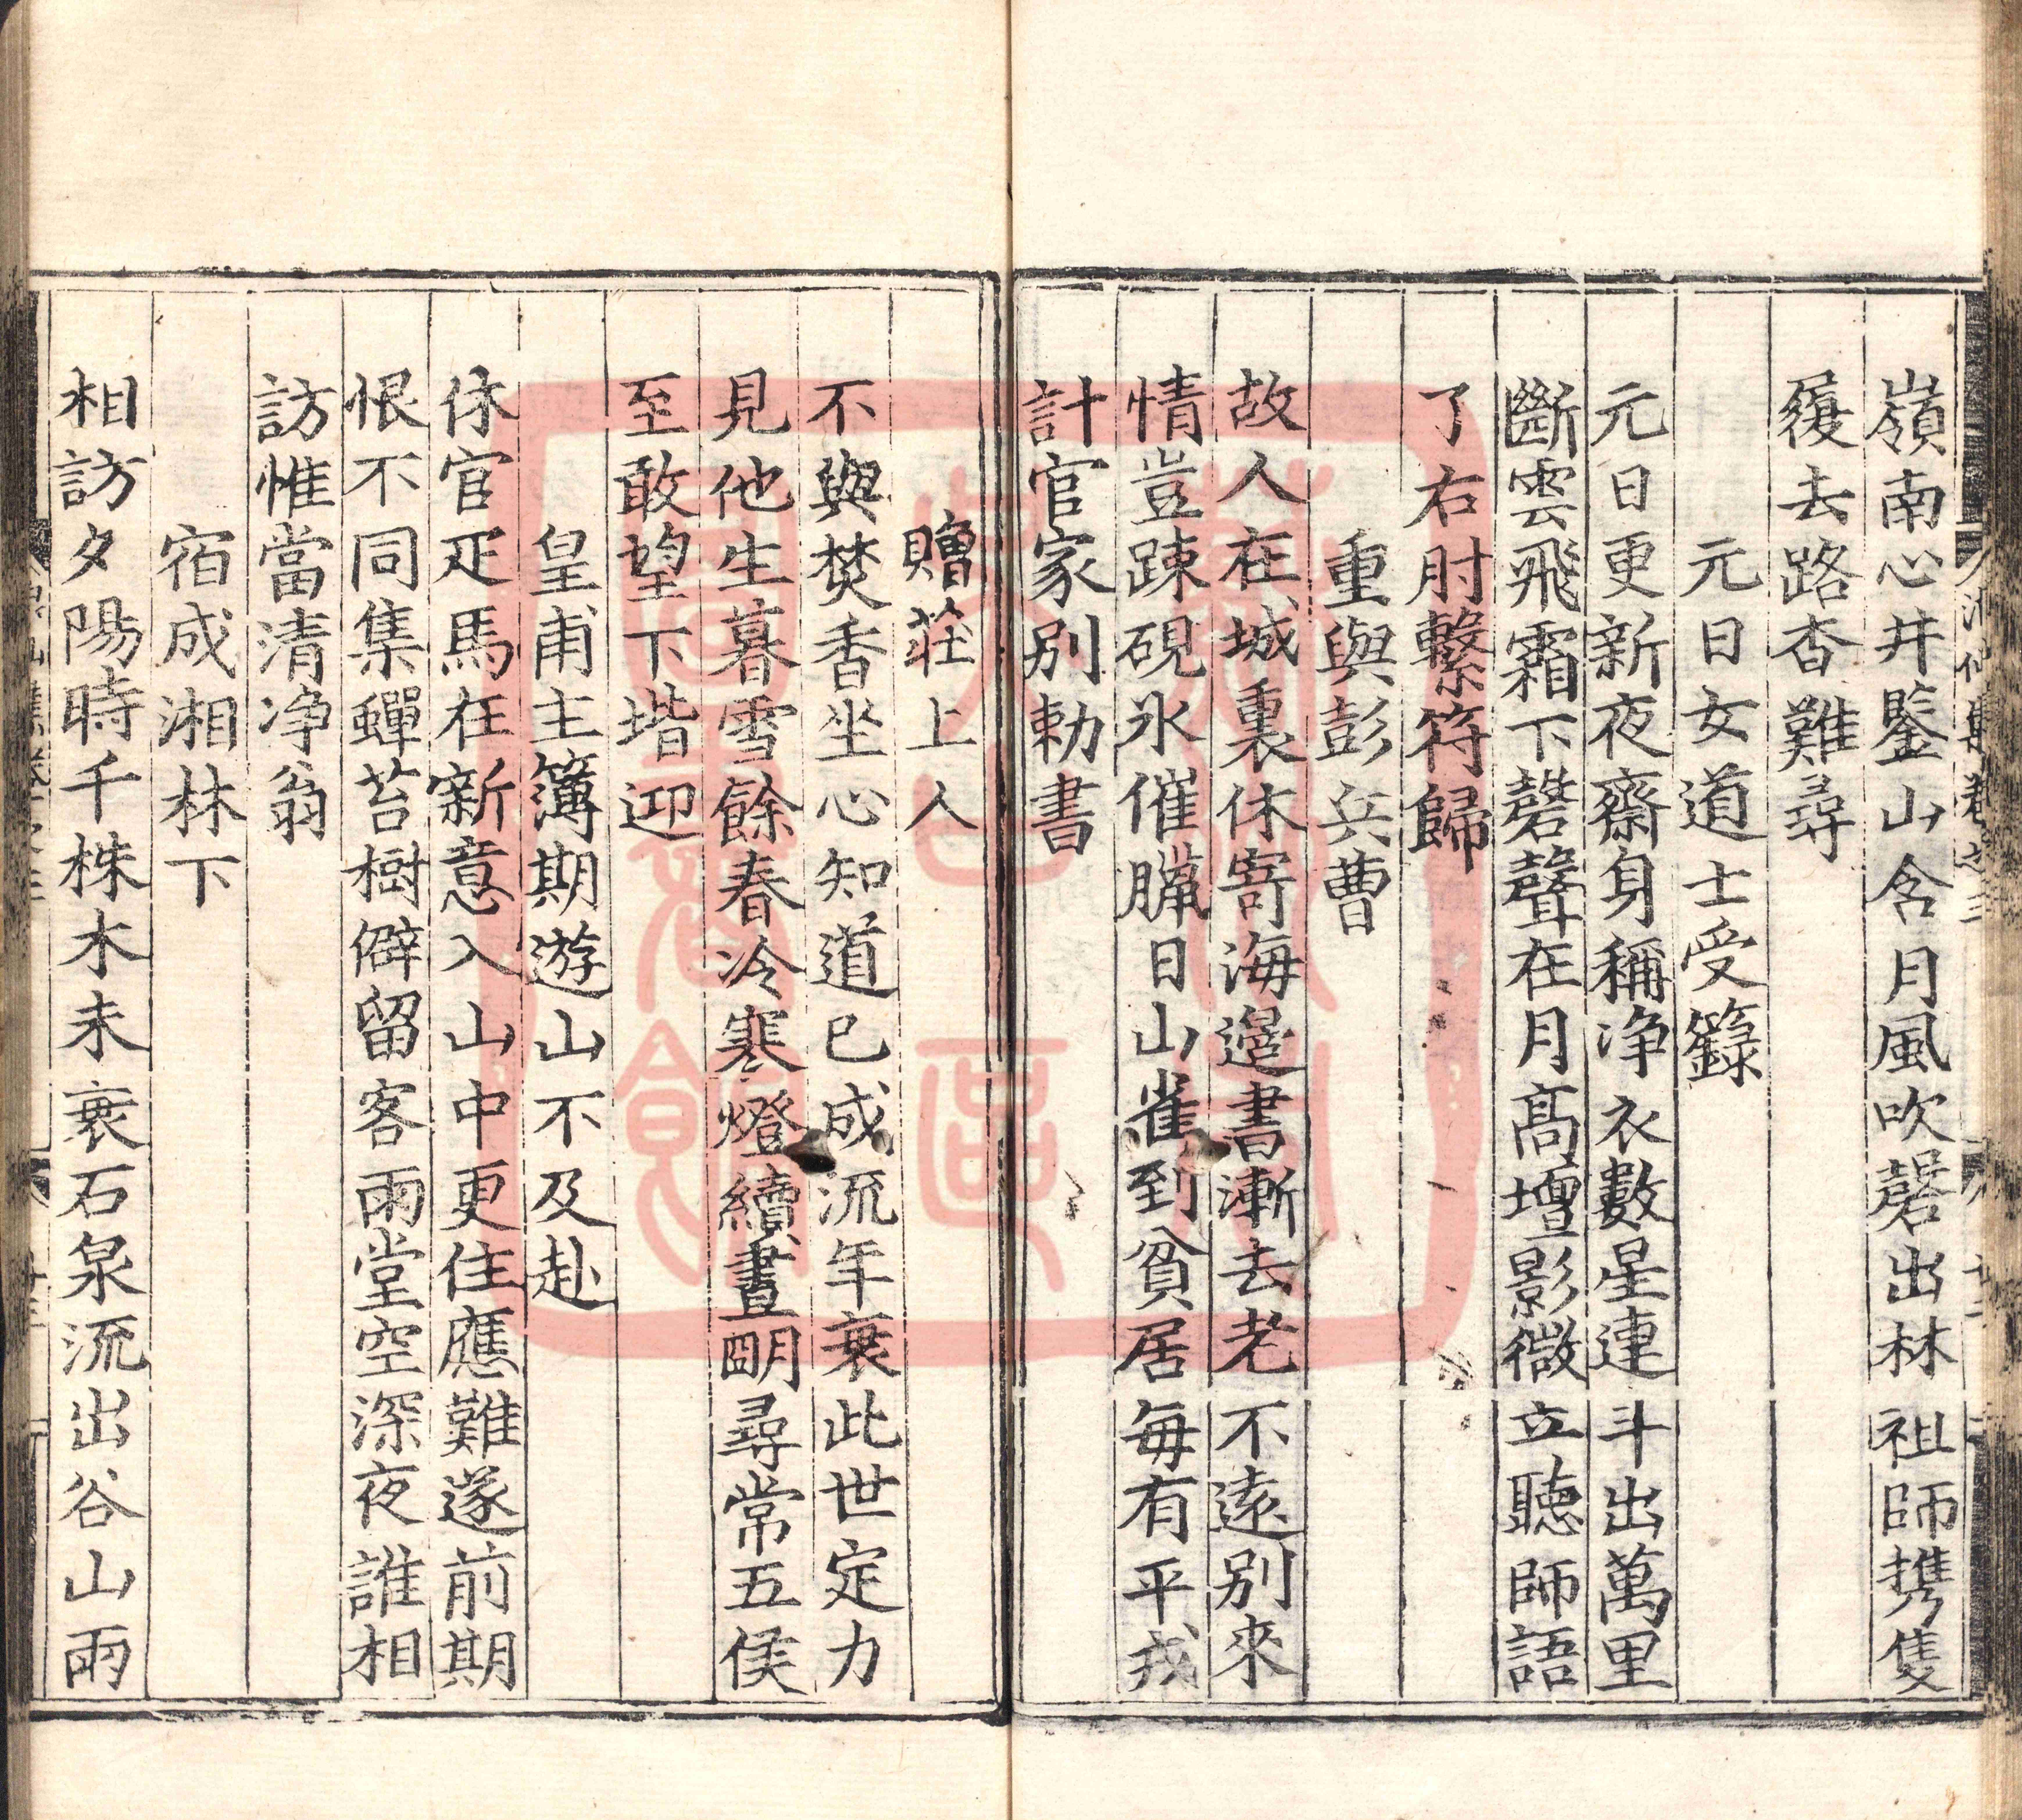 嶺南心井鑒山含月風吹磬出林祖師携隻
履去路杳難尋
元日女道士受籙
元日更新夜齋身稱净衣數星連斗出萬里
斷雲飛霜下磬聲在月髙壇影微立聽師語
了右肘繫符歸
重與彭兵曹
故人在城裏休寄海邉書漸去老不逺别來
情豈踈硯氷催臘日山雀到貧居每有平戎
計官家别勅書
贈莊上人
不與焚香坐心知道已成流年衰此世定力
見他生暮雪餘春冷寒燈續晝明尋常五侯
至敢望下堦迎
皇甫主簿期遊山不及赴
休官疋馬在新意入山中更住應難遂前期
恨不同集蟬苔樹僻留客雨堂空深夜誰相
訪惟當清净翁
宿成湘林下
相訪夕陽時千株木未衰石泉流出谷山雨